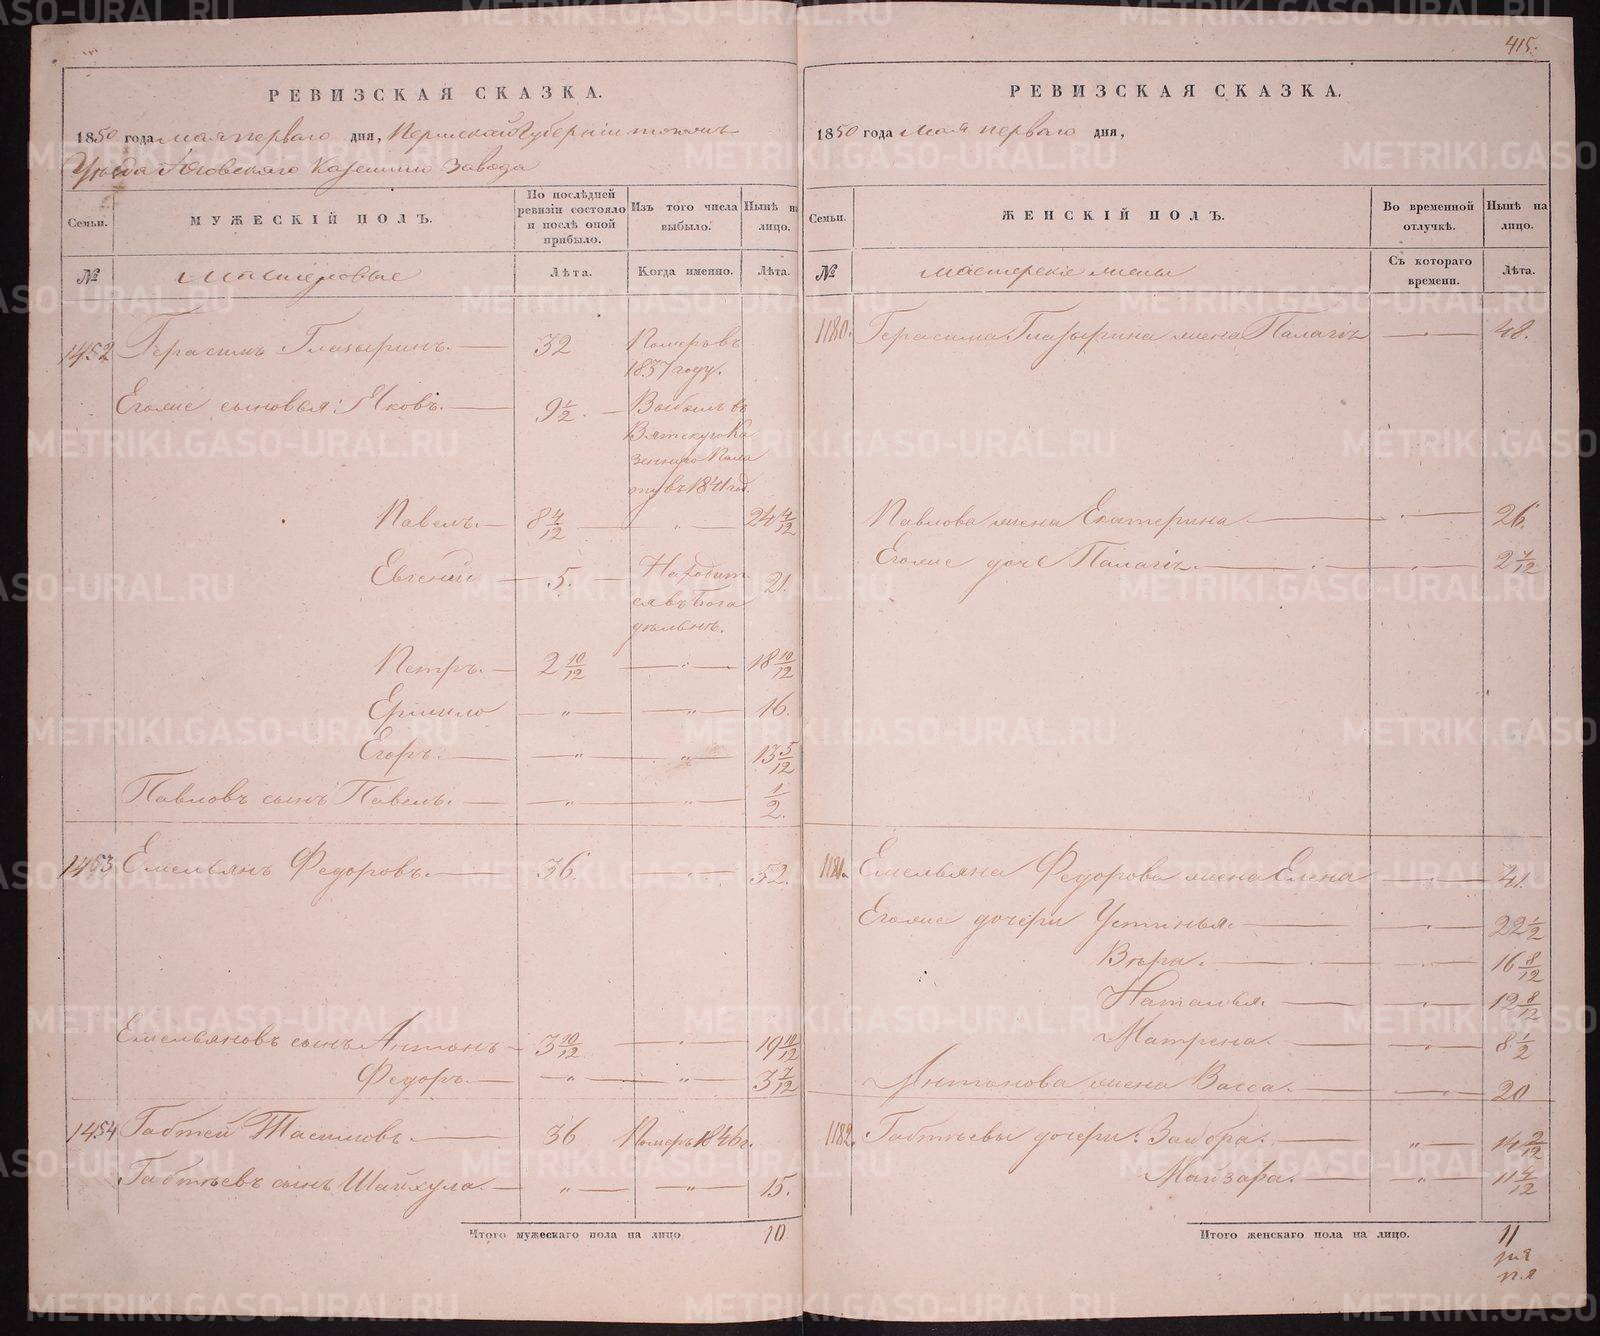 415.
РЕВИЗСКАЯ СКАЗКА.
1850 года мая перваго дня, Пермской Губернiи тогожъ
Уѣзда Юговскаго Казеннаго Завода
Семьи.
МУЖЕСКІЙ ПОЛЪ.
По послѣдней ревизіи состояло и послѣ оной прибыло.
Изъ того числа выбыло.
Нынѣ на лицо.
№
Лѣта.
Когда именно.
Лѣта.
1452 Герасимъ Глазыринъ. 32 Померъ въ 1837 году.
Егоже сыновья: Яковъ. 9 1/2 Выбылъ въ Вятскую Казенную Палату въ 1841 год.
Павелъ. 8 4/12 " 24 4/12
Евгений 5. Находится въ Богадѣльнѣ. 21.
Петръ. 2 10/12 " 18 10/12
Ермило " " 16.
Егоръ. " " 13 5/12
Павловъ сынъ Павелъ. " " 1/2.
1453 Емельянъ Федоровъ. 36. " 52.
Емельяновъ сынъ Антонъ 3 10/12 " 19 10/12
Федоръ. " " 3 7/12
1454 Габтей Тасимовъ. 36 Померъ 1846 г.
Габтѣевъ сынъ Шайхула. " " 15.
Итого мужескаго пола на лицо 10
РЕВИЗСКАЯ СКАЗКА.
1850 года Мая перваго дня,
Семьи.
ЖЕНСКІЙ ПОЛЪ.
Во временной отлучкѣ.
Нынѣ на лицо.
№
мастерскiе жены
Съ котораго времени.
Лѣта.
1180. Герасима Глазырина жена Палагiя " 48.
Павлова жена Екатерина " 26.
Егоже дочь Палагiя. " 2 7/12
1181. Емельяна Федорова жена Елена " 41.
Егоже дочери Устинья. " 22 1/2
Вѣра. " 16 8/12
Наталья. " 12 8/12
Матрена. " 8 1/2
Антонова жена Васса. " 20
1182. Габтѣевы дочери: Зюбора. " 14 2/12
Майзара. " 11 4/12
Итого женскаго пола на лицо. 11